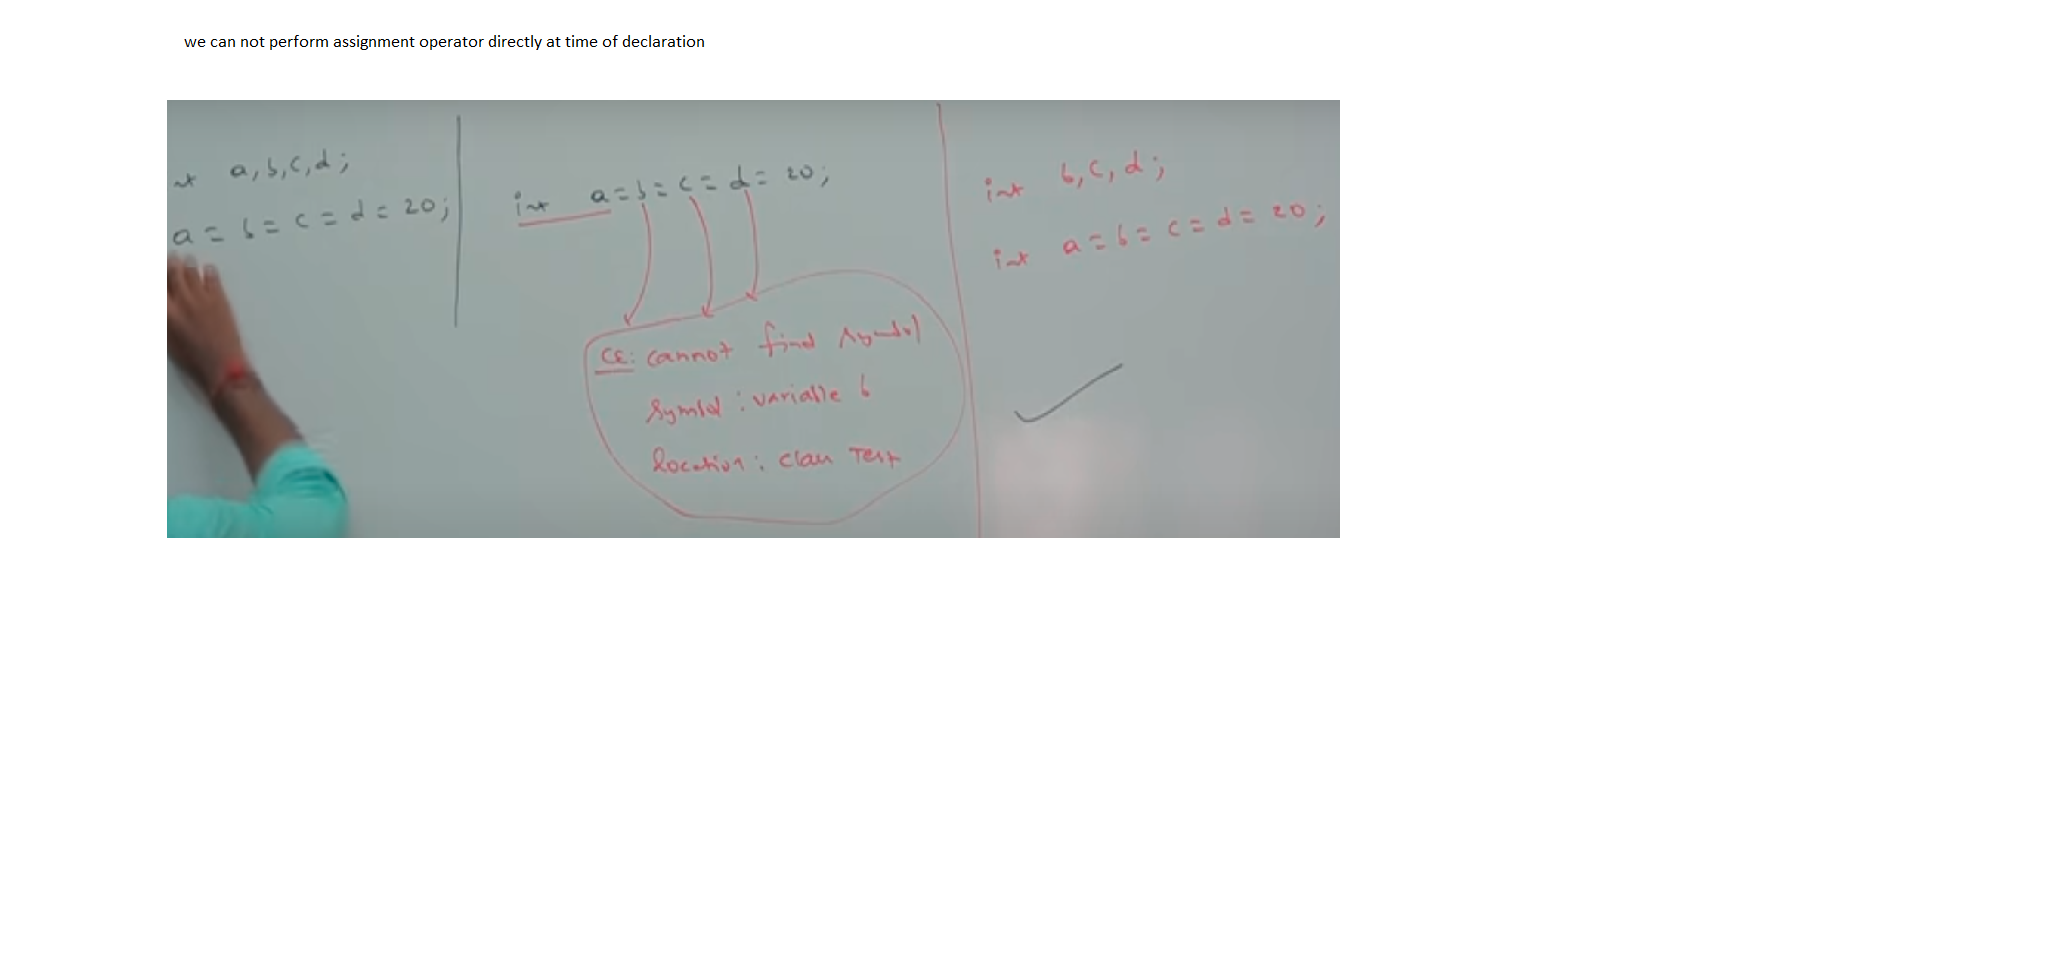 we can not perform assignment operator directly at time of declaration
a,b,c,d;
a = b = c = d = 20;
int a = b = c = d = 20;
CE: cannot find symbol
symbol : variable b
location : class Test
int b, c, d;
int a = b = c = d = 20;